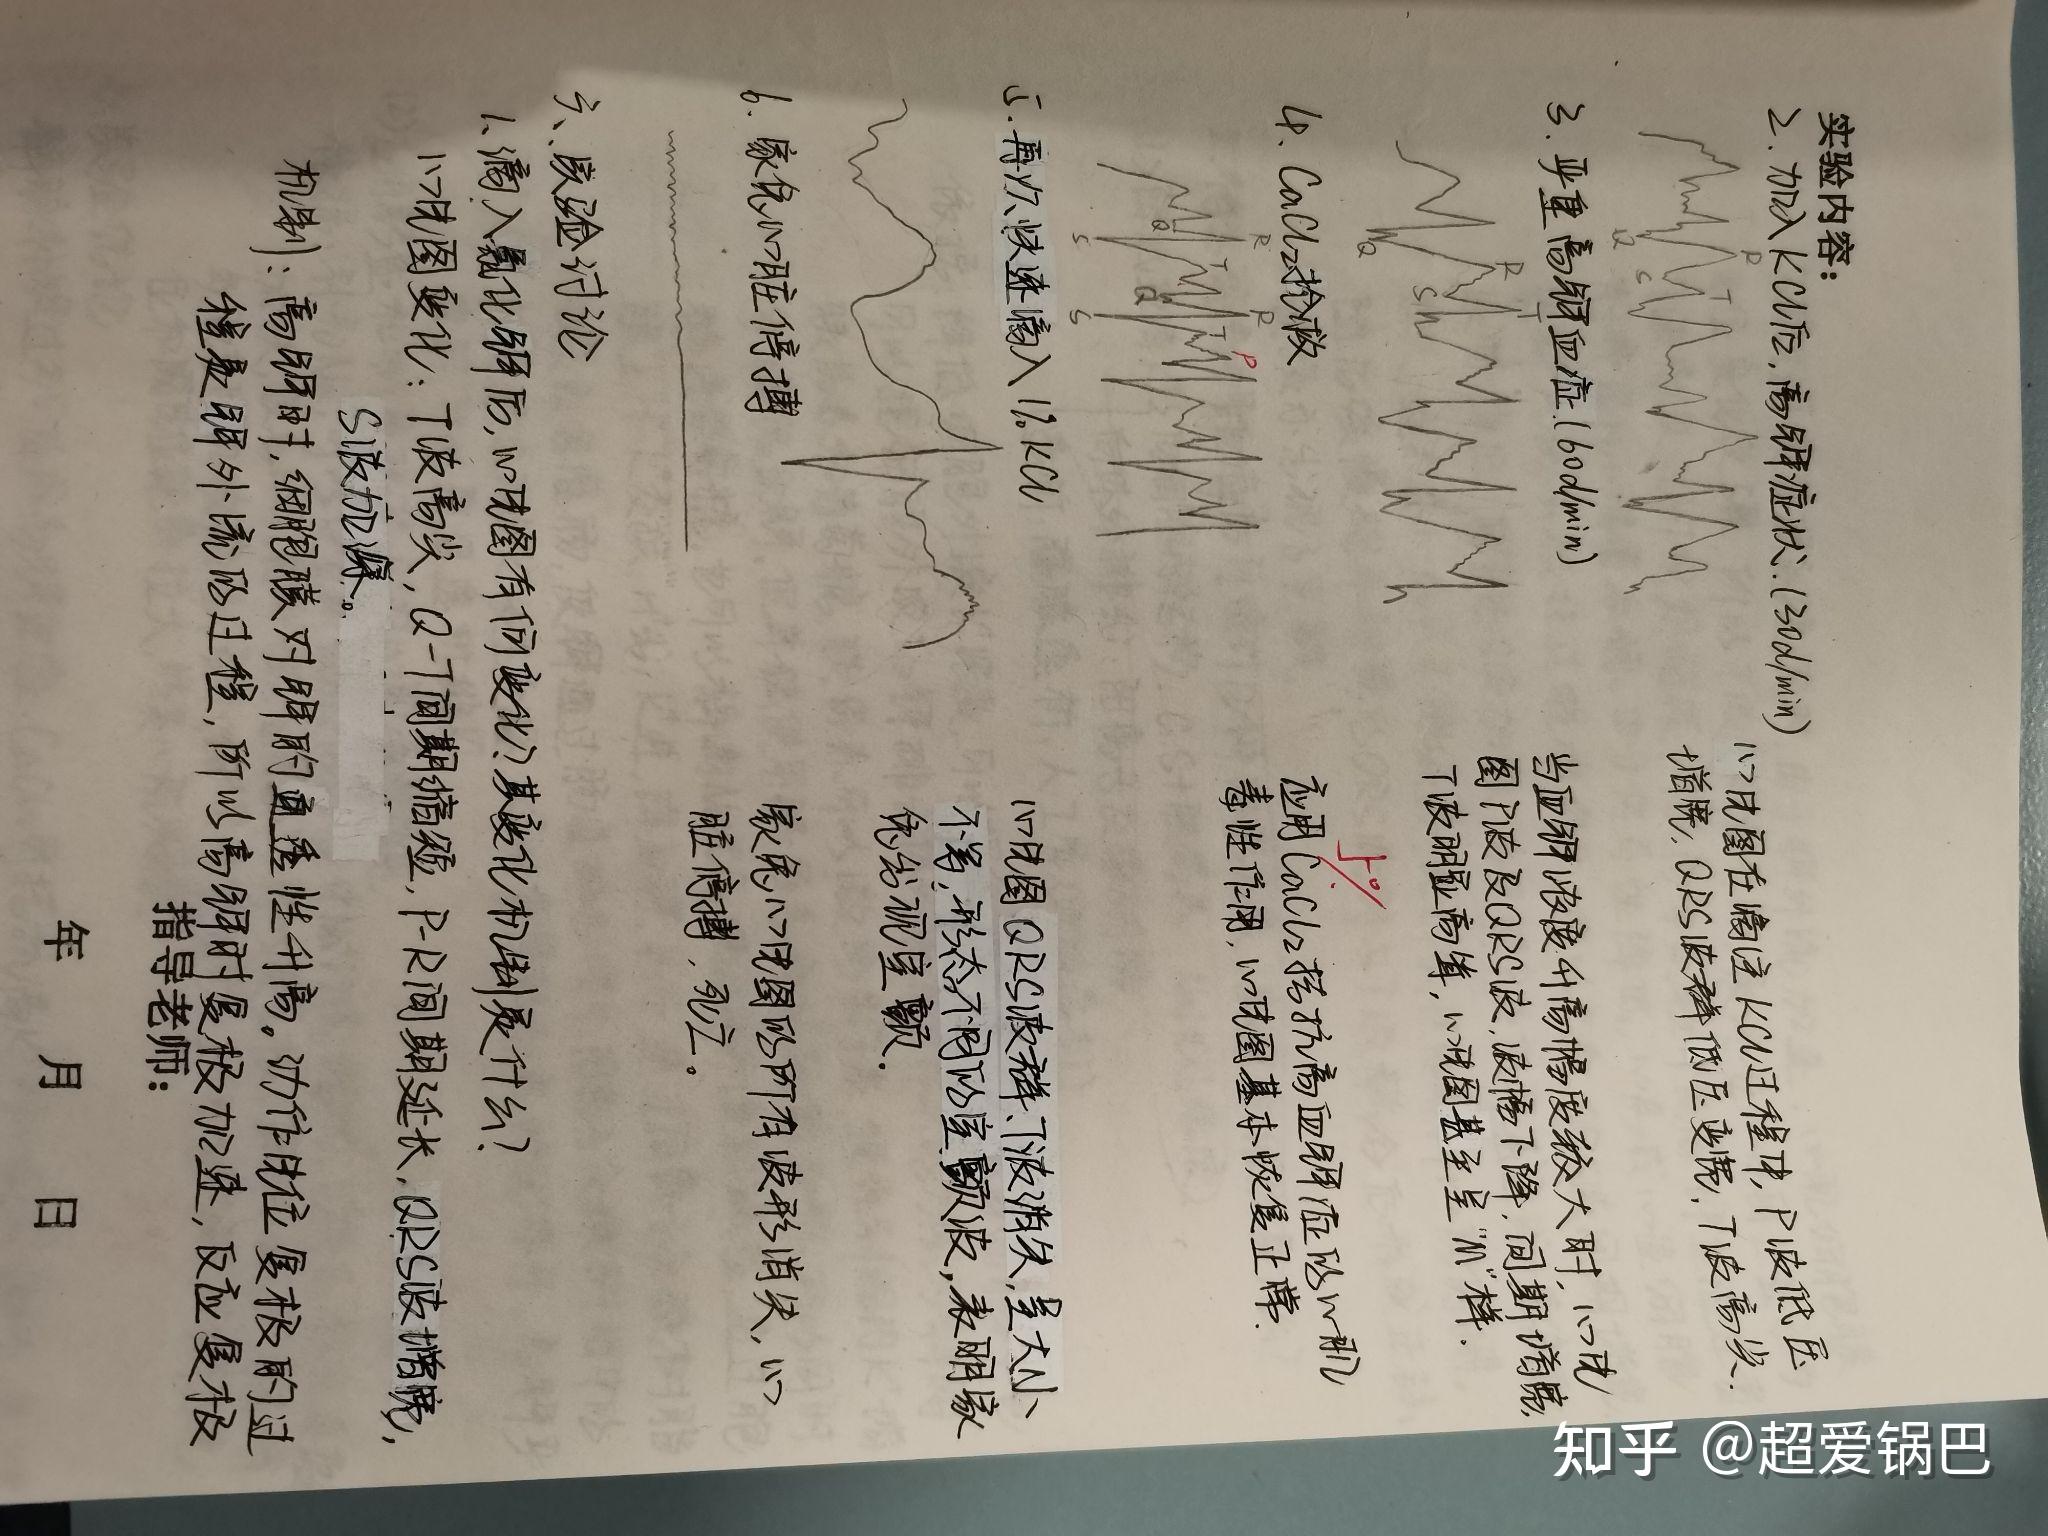 实验内容：
2. 加入KCl后，高钾症状.(30d/min)
心电图在滴注KCl过程中，P波低压
增宽，QRS波群低压变宽，T波高尖.
P
T
Q
S
3. 严重高钾血症(60d/min)
当血钾浓度升高幅度较大时，心电
图P波及QRS波，波幅下降，间期增宽，
T波明显高耸，心电图甚至呈"M"样.
R
T
Q
S
4. CaCl₂抢救
应用CaCl₂拮抗高血钾症的心肌
毒性作用，心电图基本恢复正常.
R
R
P
T
T
Q
Q
S
S
5. 再次快速滴入1%KCl
心电图QRS波群、T波消失，呈大小
不等，形态不同的室颤波，表明家
兔出现室颤.
6. 家兔心脏停搏
家兔心电图的所有波形消失，心
脏停搏，死亡。
六、实验讨论
1、滴入氯化钾后，心电图有何变化？其变化机制是什么？
心电图变化：T波高尖，Q-T间期缩短，P-R间期延长，QRS波增宽，
S波加深。
机制：高钾时，细胞膜对钾的通透性升高。动作电位复极的过
程是钾外流的过程，所以高钾时复极加速，反应复极
指导老师：
年 月 日
知乎 @超爱锅巴